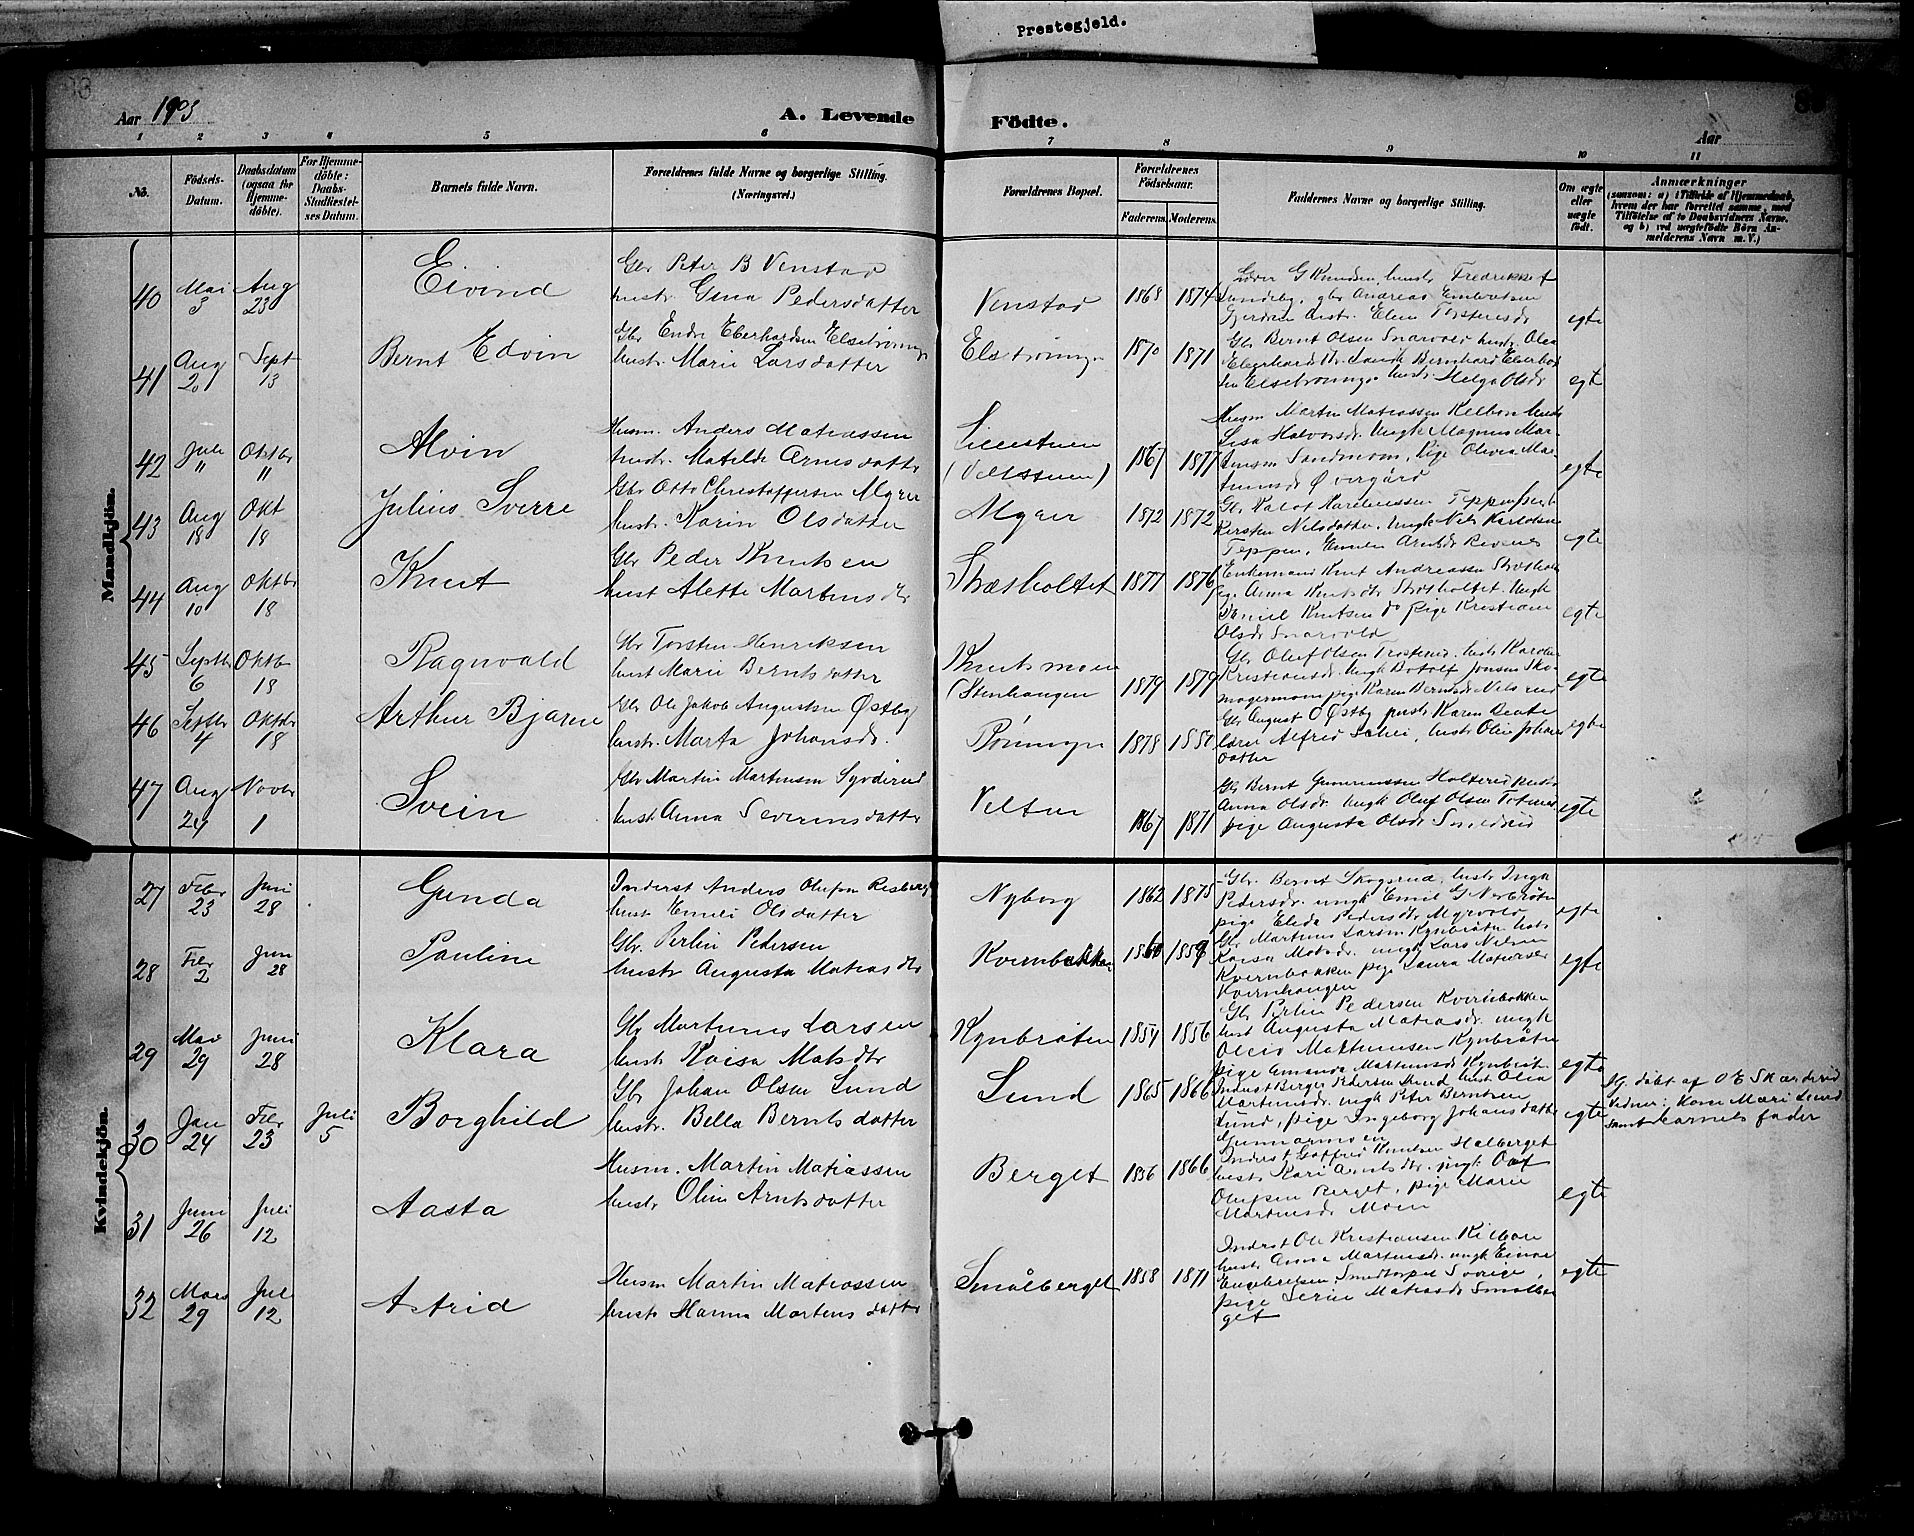 Prestegjeld.
Aar 1903
A. Levende Födte.
Aar
1 2 3 4 5 6 7 8 9 10 11
No.
Födsels-Datum.
Daabsdatum (ogsaa for Hjemme-döbte).
For Hjemme-döbte: Daabs-Stadfæstel-ses Datum.
Barnets fulde Navn.
Forældrenes fulde Navne og borgerlige Stilling.
(Næringsvei.)
Forældrenes Bopæl.
Forældrenes Födselsaar.
Faderens. Moderens.
Faddernes Navne og borgerlige Stilling.
Om ægte eller uægte födt.
Anmærkninger
(saasom: a) i Tilfælde af Hjemmedaab, hvem der har forrettet samme, med Tilföielse af to Daabsvidners Navne, og b) ved uægtefödte Börn An-melderens Navn m. V.)
Mandkjön.
40 Mai 3 Aug 23 Eivind
Gbr Peter B Venstad
hustr. Gina Pedersdatter
Venstad 1868 1874
G Knudsen, hustr Fredrikke
Sundby, gbr Andreas Embretsen
hustr. Elen
egte
41 Aug 2 Sept 13 Bernt Edvin
Gbr Endre Eberhardsen Elsetrönnigen
hustr Marie Larsdatter
1870 1871
Gbr Bernt Olsen Snarvold hustr Olea
Bernhard
hustr. Helga Olsdr
egte
42 Juli 11 Oktbr 11 Alvin
Husm. Anders Matiassen
hustr. Matilde Arnesdatter
Lillestuen
(Veltstuen)
1867 1877
Husm Martin Matiassen Kelbon hustr
Lisa Halvorsdr. Ungk Magnus Mar-
tinsen Sandmoen, Pige Olivia Mar-
tinusdr Övergård
egte
43 Aug 18 Okt 18 Julius Sverre
Gbr Otto Christoffersen Myrer
hustr. Karin Olsdatter
Myrer 1872 1872
Kersten Nilsdatter. Ungk Nils Karlsen
Teppen, Emilie Arntsdr
egte
44 Aug 10 Oktbr 18 Knut
Gbr Peder Knutsen
hust Alette Martinsdtr
Stræsholtet 1877 1876
Enkemand Knut Andreassen
pige Anna Knutsdtr Stræsholtet. Ungk
Daniel Knutsen do pige Kristiane
Olsdr Snarvold
egte
45 Septbr 6 Oktbr 18 Ragnvald
Gbr Torsten Henriksen
hust Marie Berntsdatter
Knutsmoen
(Stenhaugen
1879 1879
Gbr Oluf Olsen
Kristiansdr. Ungk Botolf Jonsen Sko-
magermoen pige Karen Berntsdr Nilsrud
egte
46 Septbr 4 Oktbr 18 Arthur Bjarne
Gbr Ole Jakob Augustsen Östby
hustr. Marta Johansdr.
1878 1880
Gbr August O Östby hustr Karen Beate
Alfred hustr Olive Johans
datter
egte
47 Aug 24 Novbr 1 Svein
Gbr Martin Martinsen Syvderud
hust. Anna Severinsdatter
Veltun 1867 1871
Gbr Bernt Gunnerussen Holterud hustr
Anna Olsdr. Ungk Oluf Olsen
pige Augusta Olsdr
egte
Kvindekjön.
27 Febr 23 Juni 28 Gunda
Inderst Anders Olufsen Risberg
hust Emili Olsdatter
Nyborg 1862 1875
Gbr. Bernt Skogsrud, hustr Ingk
Pedersdr. ungk Emil G Norbröten
pige Elida Pedersdtr Myrvold
egte
28 Febr 2 Juni 28 Pauline
Gbr. Perlin Pedersen
hustr Augusta Matiasdtr
Kvernbakken
Gbr Martinus Larsen Kynbröten hust.
Kaisa Matsdr. ungk Lars Nilsen
Kvernbakken pige Laura
Kvernhaugen
egte
29 Mai 29 Juni 28 Klara
Gbr Martinus Larsen
hustr Kaisa Matsdtr
Kynbröten 1854 1856
Gbr Perlin Pedersen Kvernbakken
hust Augusta Matiasdr. ungk
Martinusen Kynbröten
pige Amanda Martinusdr Kynbröt.
egte
30 Jan 24 Febr 23 Juli 5 Borghild
Gbr Johan Olsen Lund
hustr. Bella Berntsdatter
Lund 1865 1866
Inderst Berger Pedersen Lund hust Olia
Martinusdr. ungk Peter Berntsen
Lund, pige Ingeborg Johansdatter
Gunnarmoen
egte
Hj. döbt af O E Skærderud
Vidner: Kone Mari Lund
samt barnets fader
31 Juni 26 Juli 12 Aasta
Husm. Martin Matiassen
hustr Oline Arntsdatter
Berget 1856 1866
Inderst Gotfred Knutsen Halberget
hust. Kari Arntsdtr. ungk Oluf
Olufsen Berget, pige Marie
Martinusdr Moen
egte
32 Mars 29 Jul 12 Astrid
Husm Martin Matiassen
hustr Hanna Martinsdatter
Smålberget 1858 1871
Inderst Ole Kristiansen Kilbon
hustr Anna Martinusdr. ungk Einar
Engebretsen Smedtorpet Sverige,
pige Serine Matiasdr Smålber
get
egte